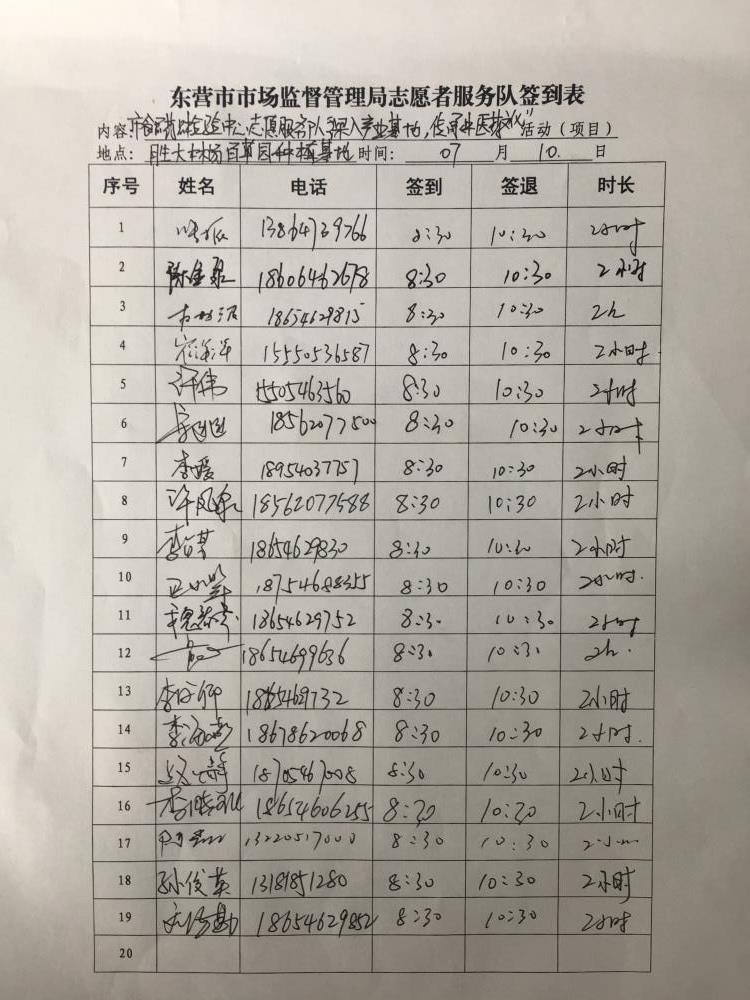 东营市市场监督管理局志愿者服务队签到表
内容:市食药检验中心志愿服务队"深入产业基地,传承中医 活动(项目)
地点:胜大林场百草园种植基地 时间:07 月 10. 日
序号 姓名 电话 签到 签退 时长
1 13864739766 8:30 10:30 2小时
2 18606462678 8:30 10:30 2小时
3 18654629815 8:30 10:30 2h
4 15550536587 8:30 10:30 2小时
5 许伟 15505463560 8:30 10:30 2小时
6 18562077500 8:30 10:30 2小时
7 李媛 18954037757 8:30 10:30 2小时
8 18562077588 8:30 10:30 2小时
9 18654629830 8:30 10:30 2小时
10 18754688355 8:30 10:30 2小时.
11 18654629752 8:30 10:30 2小时
12 18654699636 8:30 10:30 2h.
13 8:30 10:30 2小时
14 18678620068 8:30 10:30 2小时.
15 18705467008 8:30 10:30 2小时
16 18654606255 8:30 10:30 2小时
17 13220517000 8:30 10:30 2小时
18 孙俊英 8:30 10:30 2小时
19 18654629852 8:30 10:30 2小时
20